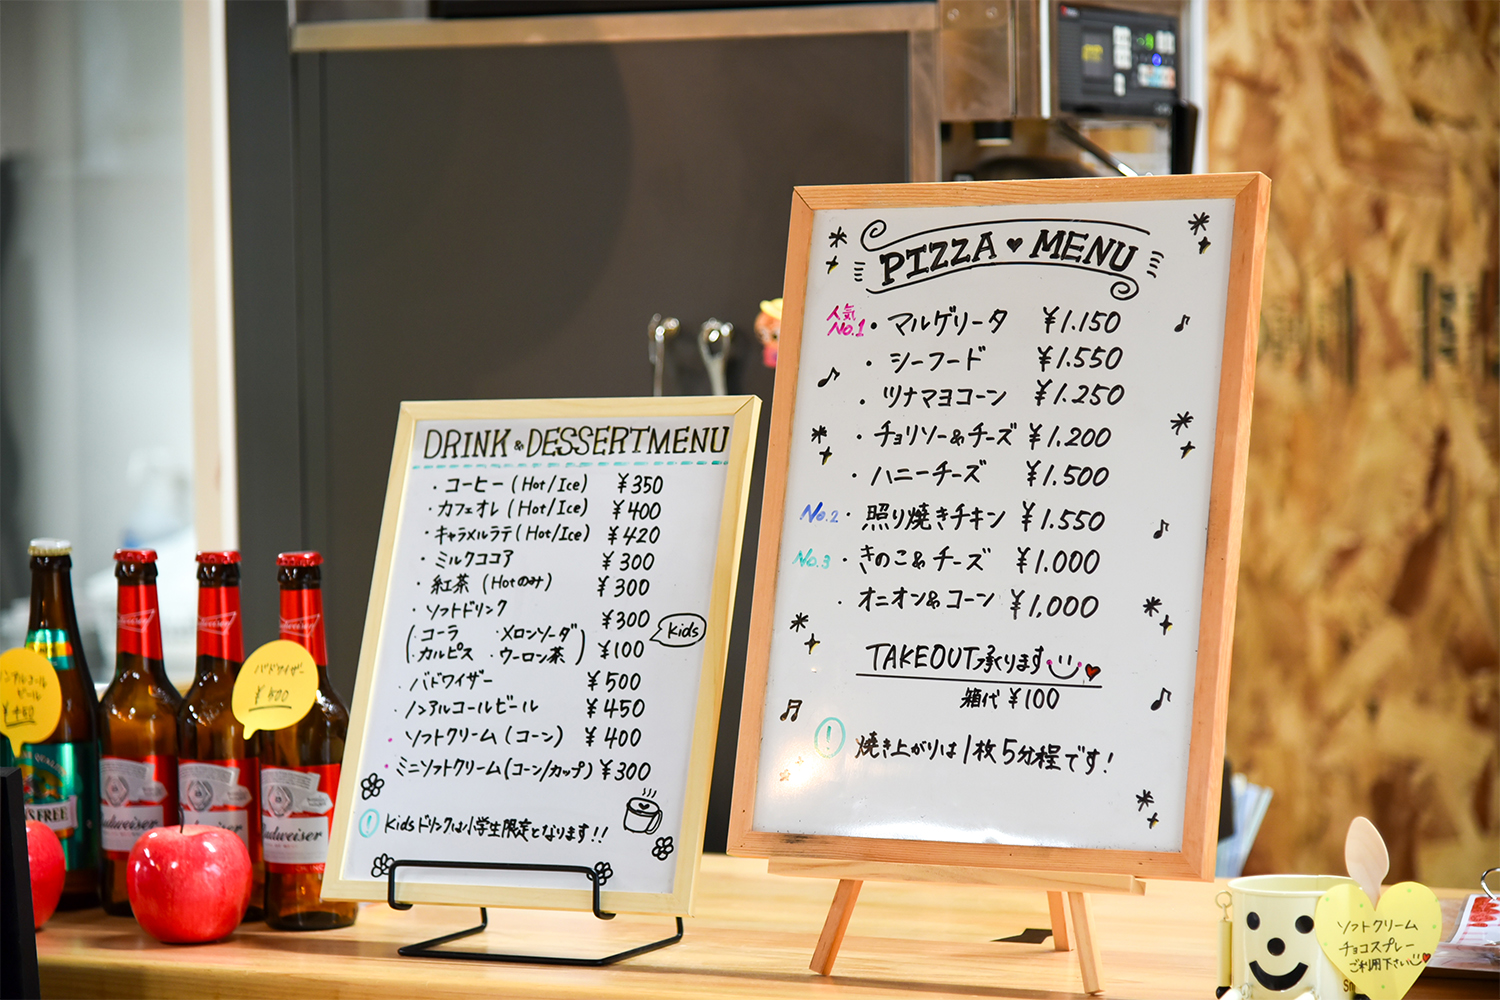 DRINK & DESSERT MENU
・コーヒー (Hot/Ice) ¥350
・カフェオレ (Hot/Ice) ¥400
・キャラメルラテ (Hot/Ice) ¥420
・ミルクココア ¥300
・紅茶 (Hotのみ) ¥300
・ソフトドリンク ¥300
(・コーラ ・メロンソーダ
・カルピス ・ウーロン茶) ¥100 Kids
・バドワイザー ¥500
・ノンアルコールビール ¥450
・ソフトクリーム (コーン) ¥400
・ミニソフトクリーム (コーン/カップ) ¥300
! Kidsドリンクは小学生限定となります!!
PIZZA ♥ MENU
人気 No.1 ・マルゲリータ ¥1.150
・シーフード ¥1.550
・ツナマヨコーン ¥1.250
・チョリソー&チーズ ¥1.200
・ハニーチーズ ¥1.500
No.2 ・照り焼きチキン ¥1.550
No.3 ・きのこ&チーズ ¥1.000
・オニオン&コーン ¥1,000
TAKEOUT承ります
箱代 ¥100
! 焼き上がりは1枚5分程です!
バドワイザー
¥500
ノンアルコール
ビール
¥450
Budweiser
Budweiser
ソフトクリーム
チョコスプレー
ご利用下さい